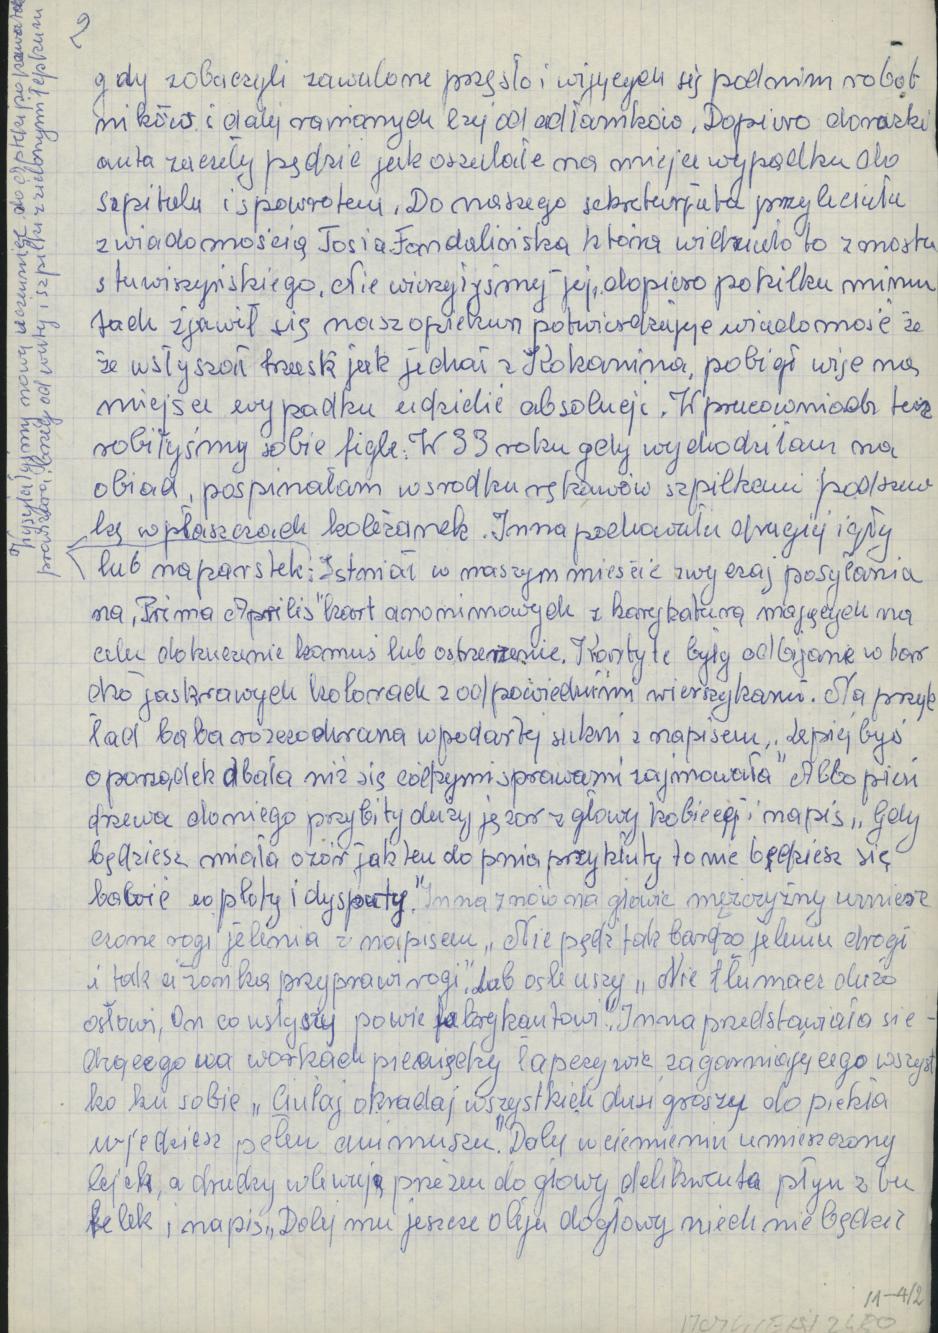 9
gdy zobaczyli zawalone przęsło i wijących się pod nim robot
ników i dalej rannych czyj od odłamków. Dopiero dorożki
auta zaczely pędzić jak oszalałe na miejsce wypadku do
szpitala i spowrotem. Do naszego sekretarjata przyleciała
z wiadomością Tosia Fandalińska która widziała to z mostu
stawiszyńskiego. Nie wierzyłyśmy jej, dopiero po kilku minu
tach zjawił się nasz opiekun potwierdzając wiadomość że
że usłyszał trzask jak jechał z Kokanina, pobiegł więc na
miejsce wypadku udzielić absolucji. W pracowniach też
robiłyśmy sobie figle. W 33 roku gdy wychodziłam na
obiad, pospinałam w srodku rękawów szpilkami podszew
kę w płaszczach koleżanek. Inna pochowała drugiej igły
lub naparstek. Istniał w naszym mieście zwyczaj posyłania
na „Prima Aprilis" kart anonimowych z karykaturą mających na
celu dokuczenie komuś lub ostrzeżenie. Karty te były odbijane w bar
dzo jaskrawych kolorach z odpowiednimi wierszykami. Na przyk
ład baba rozczochrana w podartej sukni z napisem „Lepiej byś
o porządek dbała niż się cudzymi sprawami zajmowała" Albo pień
drzewa do niego przybity duży jęzor z głowy kobiecej i napis „Gdy
będziesz miała ozór jak ten do pnia przykuty to nie będziesz się
bawić w ploty i dysputy." Inna znów na głowie mężczyzny umiesz
czone rogi jelenia z napisem „Nie pędź tak bardzo jeleniu drogi
i tak ci żonka przyprawi rogi", lub osle uszy „Nie tłumacz dużo
osłowi, On co usłyszy powie fabrykantowi". Inna przedstawiała sie-
dzącego na workach pieniędzy łapczywie zagarniającego wszyst
ko ku sobie „Ciułaj okradaj wszystkich duś groszy do piekła
wjedziesz pełen animuszu". Dalej w ciemieniu umieszczony
lejek, a drudzy wlewają przezeń do głowy delikwenta płyn z bu
telek i napis „Dolej mu jeszcze oleju do głowy niech nie będzie
Posyłałyśmy nową uczennicę do apteki po
11-4/2